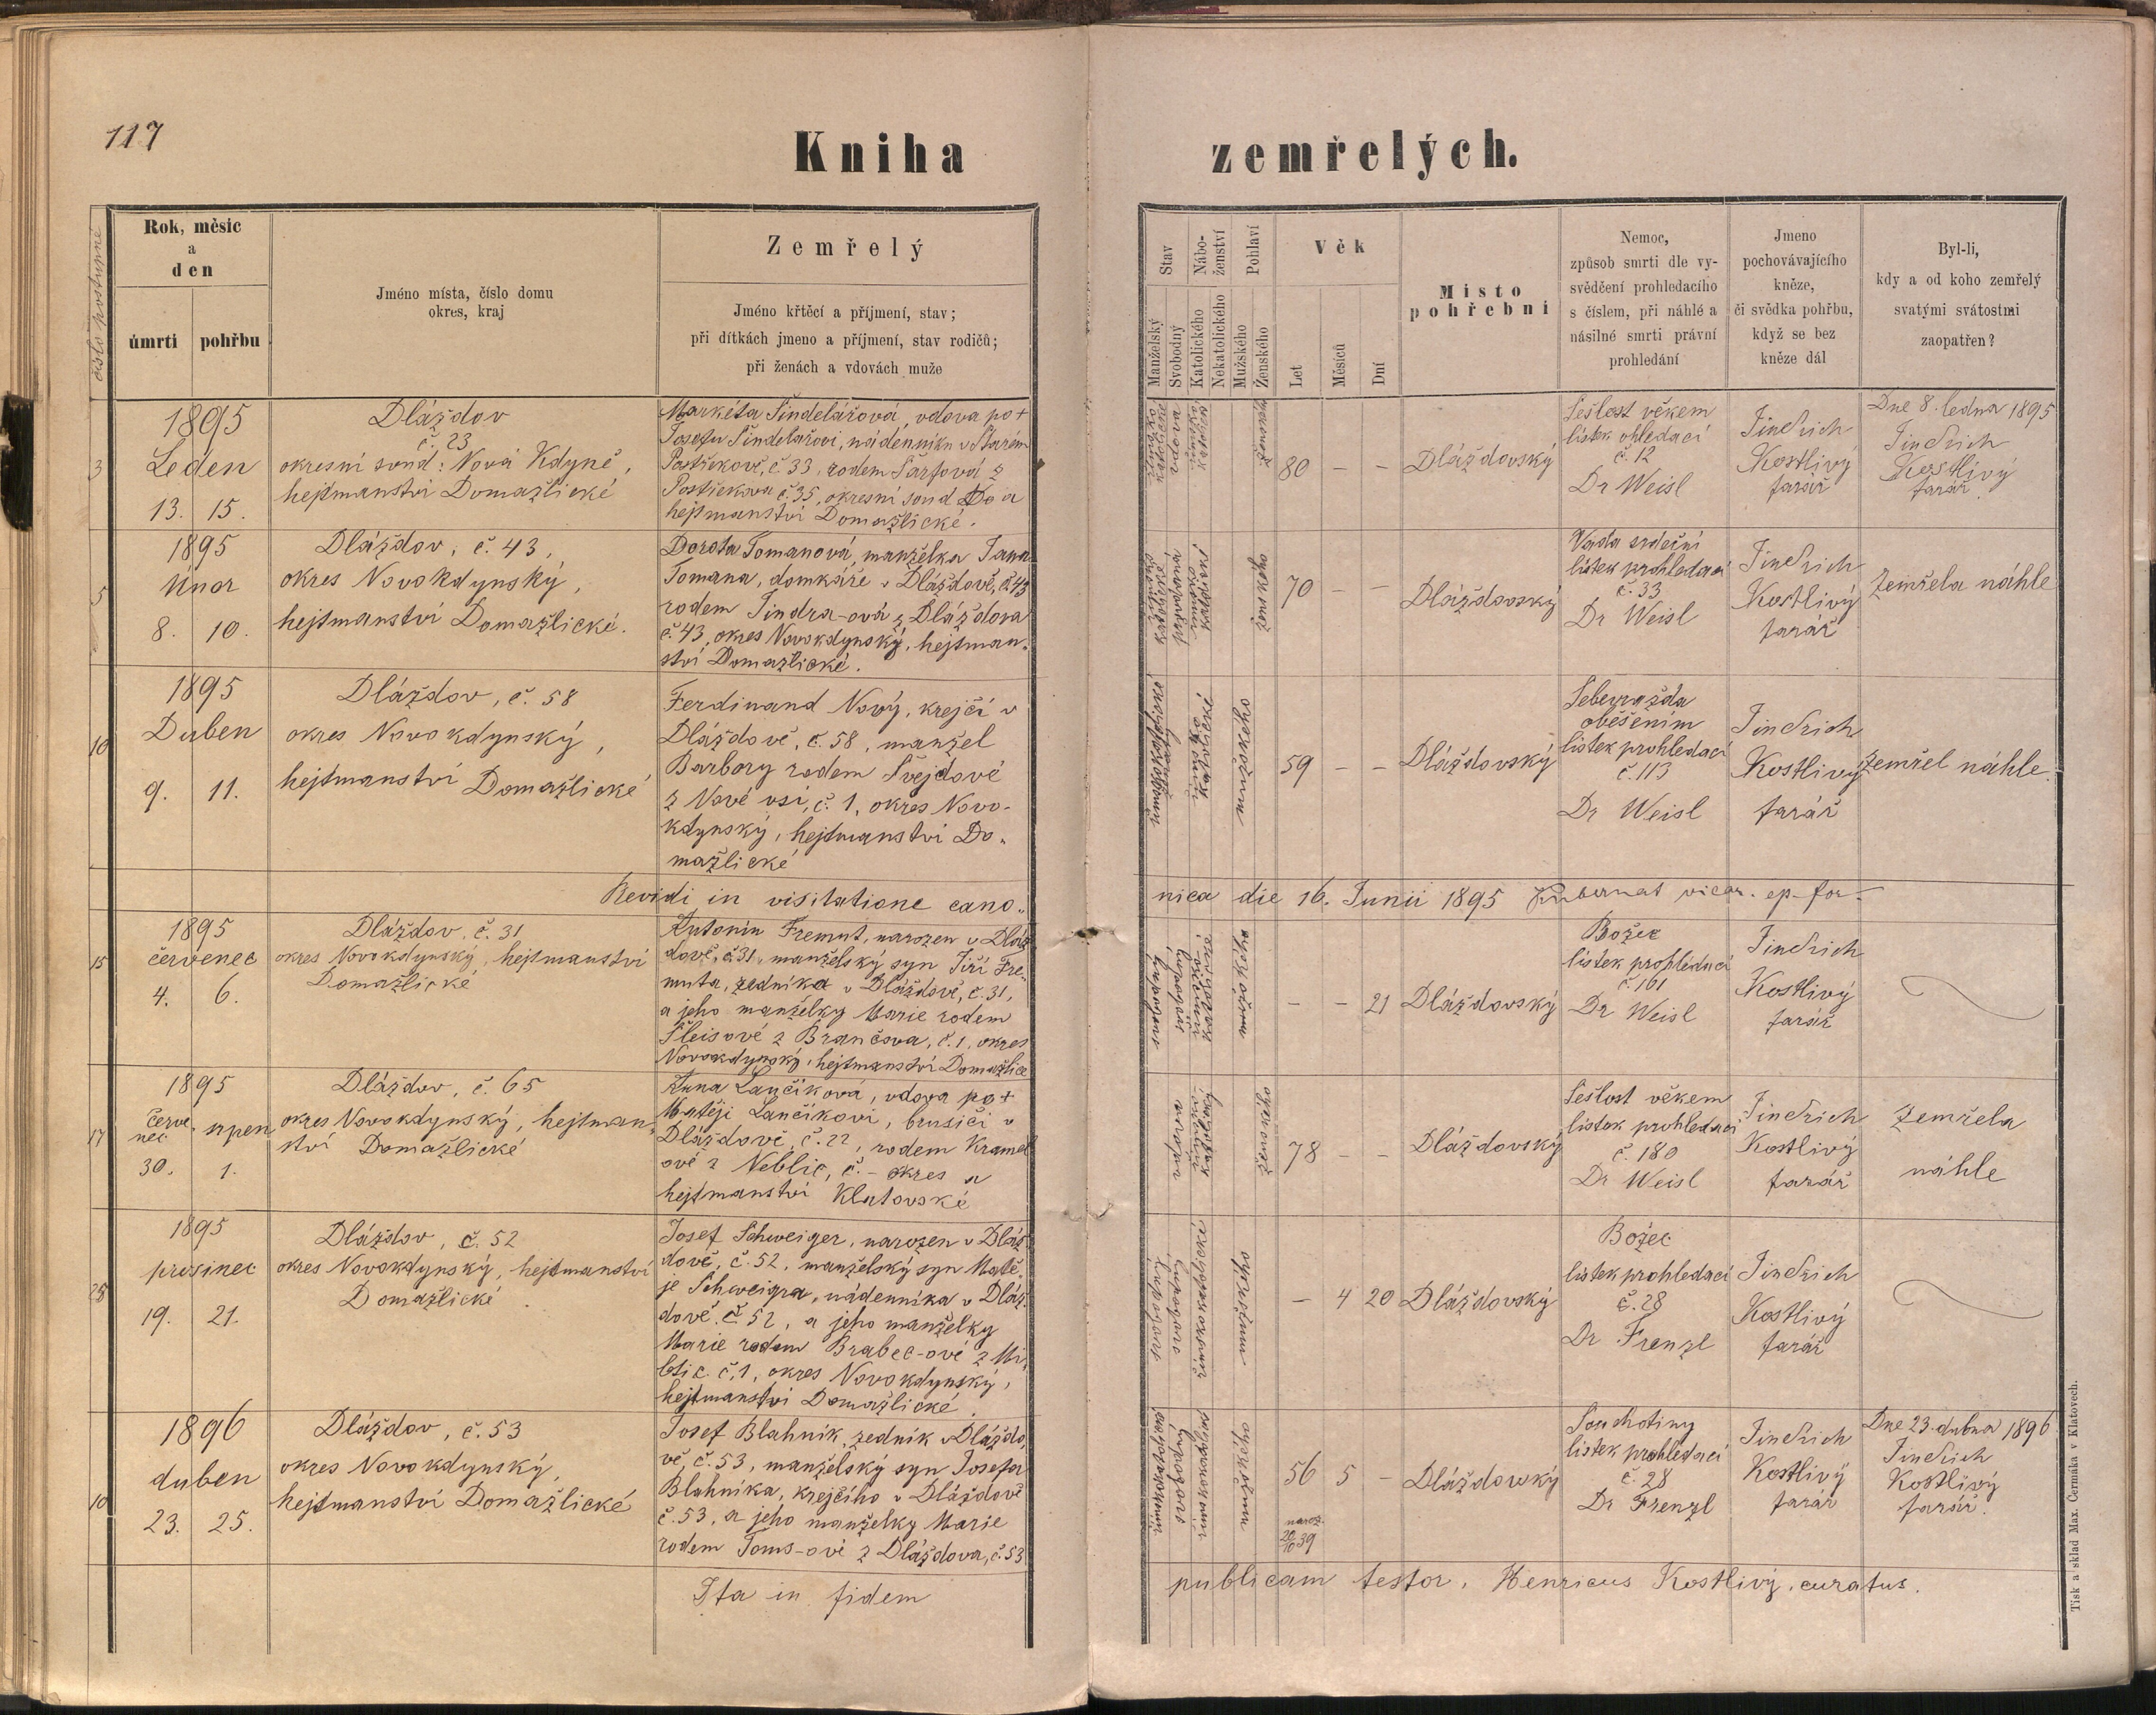 117
Kniha zemřelých.
číslo postupné
Rok, měsíc
a
den
úmrtí
pohřbu
Jméno místa, číslo domu
okres, kraj
Zemřelý
Jméno křtěcí a příjmení, stav;
při dítkách jmeno a příjmení, stav rodičů;
při ženách a vdovách muže
Stav
Manželský
Svobodný
Nábo-
ženství
Katolického
Nekatolického
Pohlaví
Mužského
Ženského
Věk
Let
Měsíců
Dní
Místo
pohřební
Nemoc,
způsob smrti dle vy-
svědčení prohledacího
s číslem, při náhlé a
násilné smrti právní
prohledání
Jmeno
pochovávajícího
kněze,
či svědka pohřbu,
když se bez
kněze dál
Byl-li,
kdy a od koho zemřelý
svatými svátostmi
zaopatřen?
3
1895
Leden
13. 15.
Dláždov
č. 23
okresní soud: Nová Kdyně,
hejtmanství Domažlické
Markéta Šindelářová, vdova po +
Josefu Šindelářovi, nádenníku v Starém
Postřekově, č 33, rodem
Postřekova č. 35, okresní soud a
hejtmanství Domažlické.
80 – –
Dláždovský
Sešlost věkem
lístek ohledací
č. 12
Dr Weisl
Jindřich
Kostlivý
farář
Dne 8. ledna 1895
Jindřich
Kostlivý
farář.
5
1895
Únor
8. 10.
Dláždov, č. 43,
okres Novokdynský,
hejtmanství Domažlické.
Dorota Tomanová, manželka Jana
Tomana, domkáře v Dláždově, č. 43
rodem Jindra-ová z Dláždova
č. 43, okres Novokdynský, hejtman-
ství Domažlické.
ženského
70 – –
Dláždovský
Vada srdeční
lístek prohledací
č. 33
Dr Weisl
Jindřich
Kostlivý
farář
Zemřela náhle
10
1895
Duben
9. 11.
Dláždov, č. 58
okres Novokdynský,
hejtmanství Domažlické
Ferdinand Nový, krejčí v
Dláždově, č. 58, manžel
Barbory rodem Švejdové
z Nové vsi, č. 1, okres Novo-
kdynský, hejtmanství Do-
mažlické
mužského
59 – –
Dláždovský
Sebevražda
oběšením
lístek prohledací
č. 113
Dr Weisl
Jindřich
Kostlivý
farář
Zemřel náhle.
Revidi in visitatione cano-
nica die 16. Junii 1895 vicar. ep. for.
15
1895
červenec
4. 6.
Dláždov, č. 31
okres Novokdynský, hejtmanství
Domažlické
Antonín Fremut, narozen v Dláž-
dově, č. 31, manželský syn Jiří Fre-
muta, zedníka v Dláždově, č. 31,
a jeho manželky Marie rodem
Šleisové z Brančova, č. 1, okres
Novokdynský, hejtmanství Domažlice
mužského
– – 21
Dláždovský
Božec
lístek prohledací
č. 161
Dr Weisl
Jindřich
Kostlivý
farář
17
1895
červe-
nec srpen
30. 1.
Dláždov, č. 65
okres Novokdynský, hejtman-
ství Domažlické
Anna Lančíková, vdova po +
Matěji Lančíkovi, brusiči v
Dláždově, č. 22, rodem Kramel
ové z Neblic, č. – okres a
hejtmanství Klatovské
vdova
ženského
78 – –
Dláždovský
Sešlost věkem
lístek prohledací
č. 180
Dr Weisl
Jindřich
Kostlivý
farář
Zemřela
náhle
28
1895
prosinec
19. 21.
Dláždov, č. 52
okres Novokdynský, hejtmanství
Domažlické
Josef Schweiger, narozen v Dláž-
dově, č. 52, manželský syn Matě-
je Schweigra, nádenníka v Dláž-
dově, č. 52, a jeho manželky
Marie rodem Brabec-ové z
č. 1, okres Novokdynský,
hejtmanství Domažlické
svobodný
mužského
– 4 20
Dláždovský
Božec
lístek prohledací
č. 28
Dr Frenzl
Jindřich
Kostlivý
farář
10
1896
duben
23. 25.
Dláždov, č. 53
okres Novokdynský,
hejtmanství Domažlické
Josef Blahník, zedník v Dláždo-
vě, č. 53, manželský syn Josefa
Blahníka, krejčího v Dláždově
č. 53, a jeho manželky Marie
rodem Toms-ové z Dláždova, č. 53
svobodný
mužského
56 5 –
naroz.
20/10 39
Dláždowský
Souchotiny
lístek prohledací
č. 28
Dr Frenzl
Jindřich
Kostlivý
farář
Dne 23. dubna 1896
Jindřich
Kostlivý
farář.
Ita in fidem
publicam testor. Henricus Kostlivý, curatus.
Tisk a sklad Max. Čermáka v Klatovech.